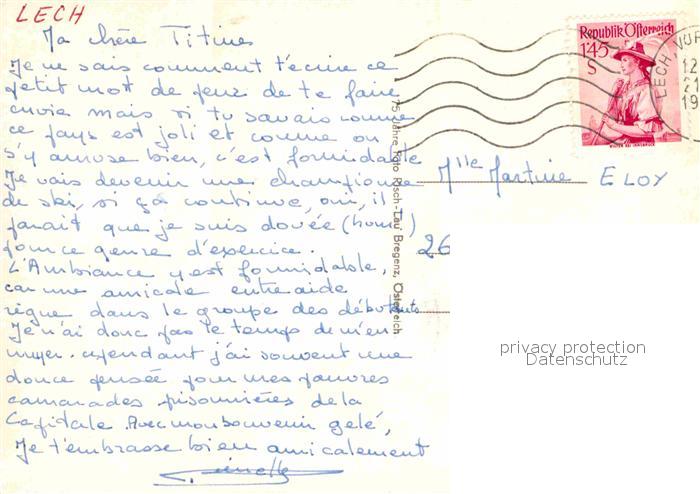 LECH
Ma chère Titines
Je ne sais comment t'écrire ce
petit mot de peur de te faire
envie mais si tu savais comme
ce pays est joli et comme on
s'y amuse bien, c'est formidable
Je vais devenir une championne
de ski, si ça continue, oui, il
parait que je suis douée (hum!)
pour ce genre d'exercice.
L'Ambiance y est formidable,
car une amicale entraide
règne dans le groupe des débutants
Je n'ai donc pas le temps de m'en-
nuyer. cependant j'ai souvent une
douce pensée pour mes pauvres
camarades prisonnières de la
Capitale. Avec mon souvenir gelé,
Je t'embrasse bien amicalement
75 Jahre Foto Risch-Lau Bregenz, Österreich
Republik Österreich
1'45
S
LECH, VOR
12
21
19
Mlle Martine ELOY
26
privacy protection
Datenschutz